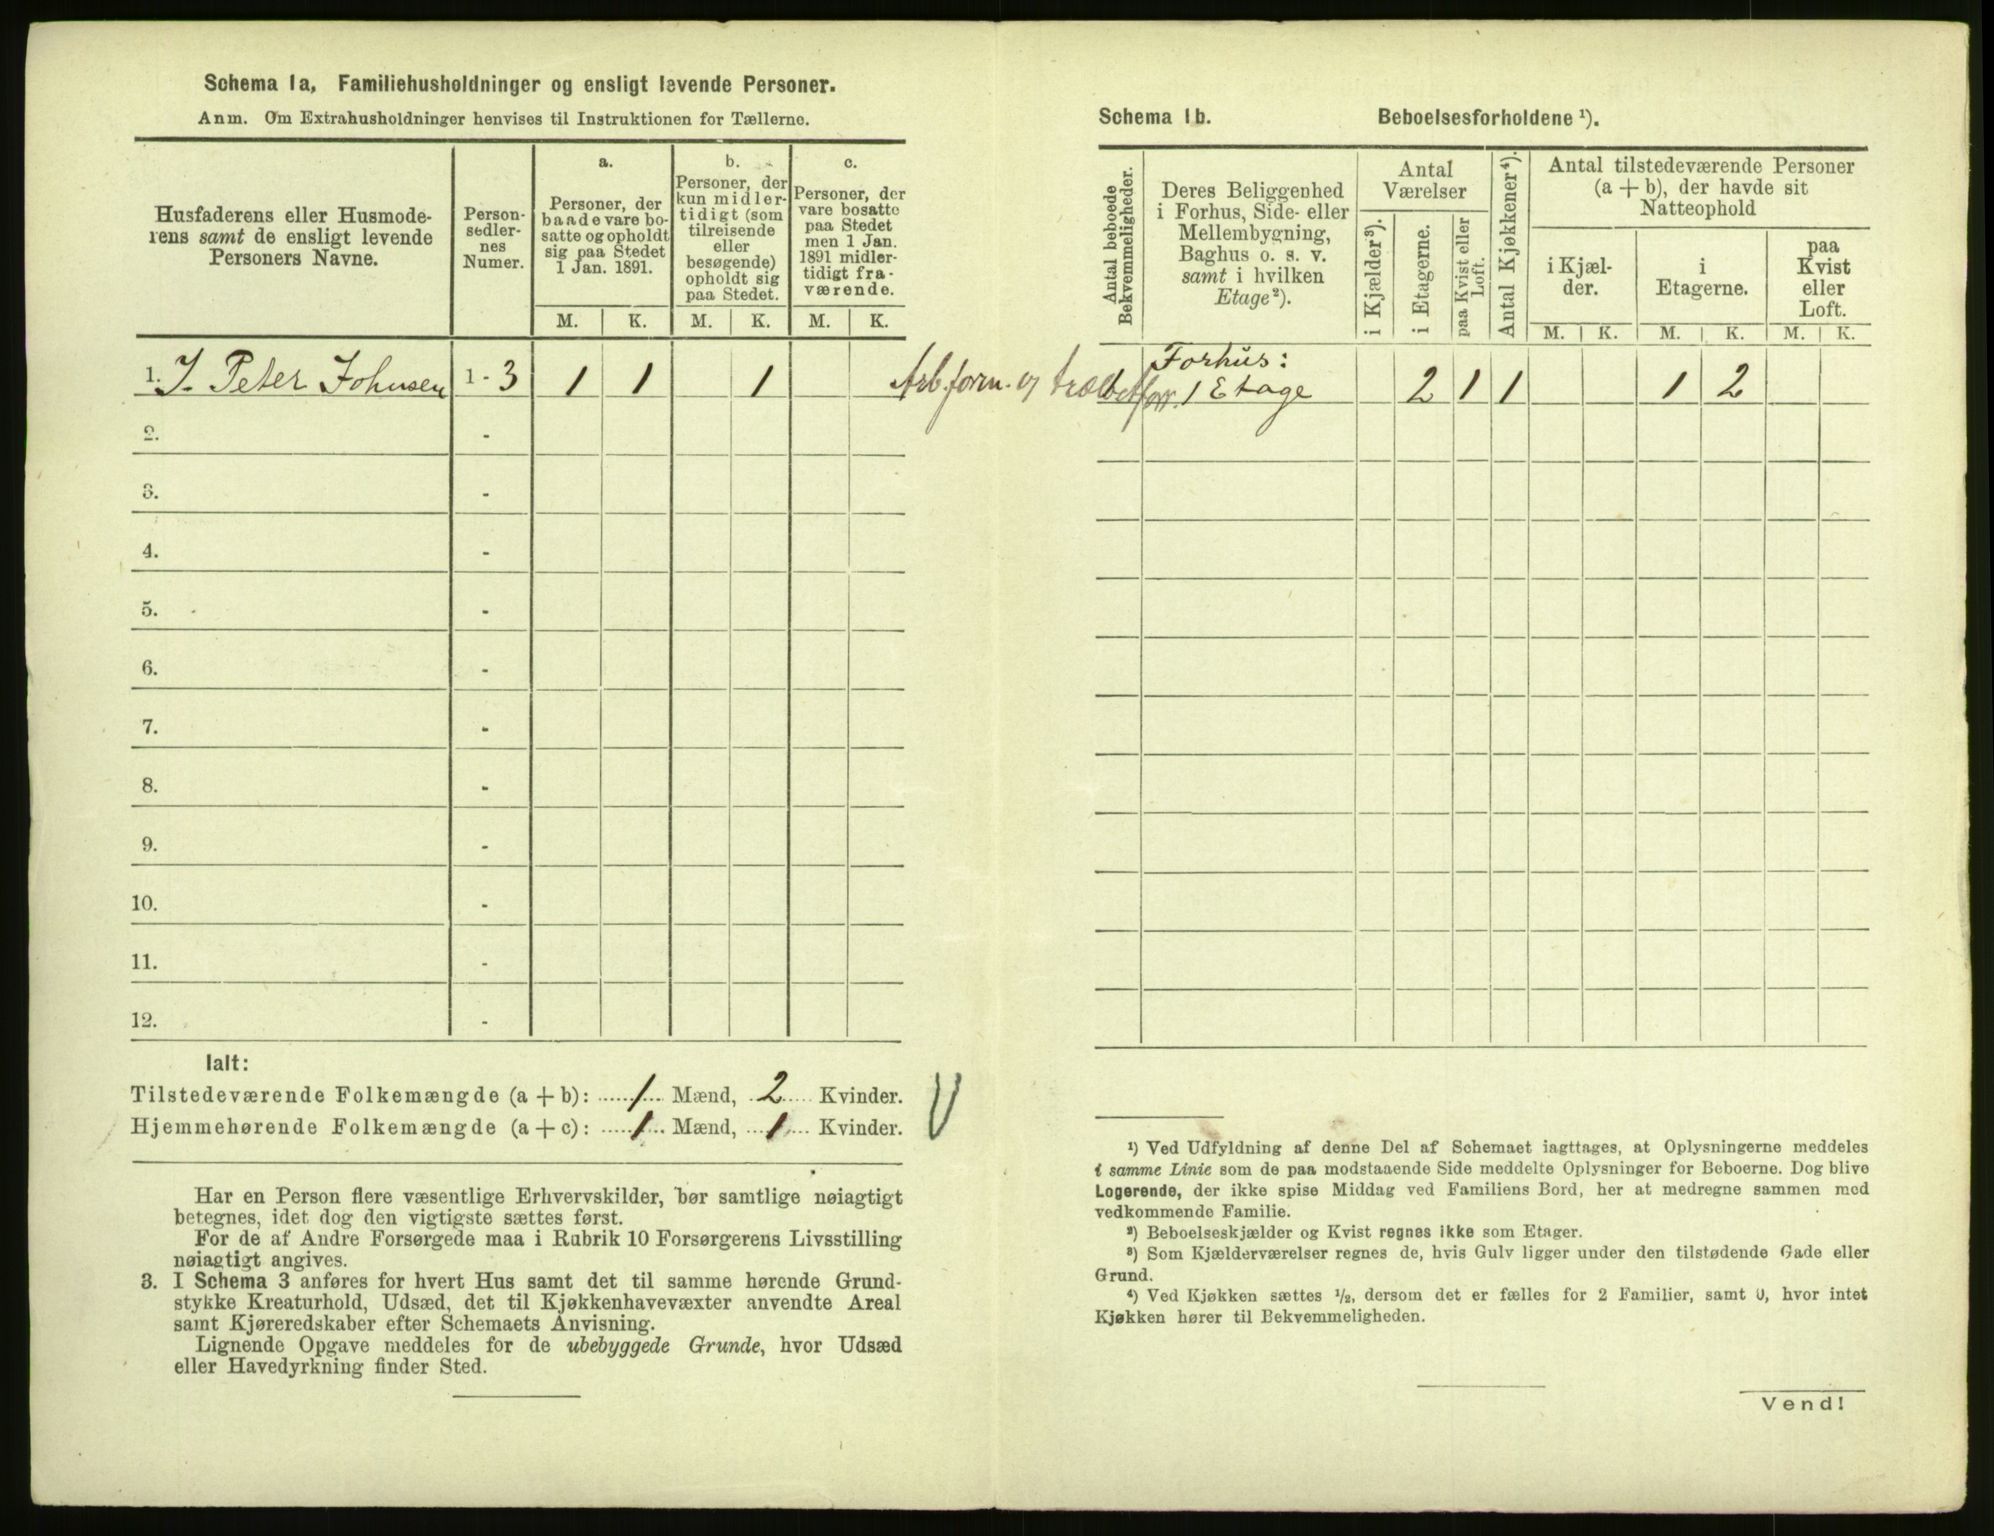 Schema 1a, Familiehusholdninger og ensligt levende Personer.
Anm. Om Extrahusholdninger henvises til Instruktionen for Tællerne.
Husfaderens eller Husmode-
rens samt de ensligt levende
Personers Navne.
Person-
sedler-
nes
Numer.
a.
Personer, der
baade vare bo-
satte og opholdt
sig paa Stedet
1 Jan. 1891.
b.
Personer, der
kun midler-
tidigt (som
tilreisende
eller
besøgende)
opholdt sig
paa Stedet.
c.
Personer, der
vare bosatte
paa Stedet
men 1 Jan.
1891 midler-
tidigt fra-
værende.
M. K. M. K. M. K.
1. J. Peter Johnsen 1 - 3 1 1 1
2. -
3. -
4. -
5. -
6. -
7. -
8. -
9. -
10. -
11. -
12. -
Ialt:
Tilstedeværende Folkemængde (a + b): 1 Mænd, 2 Kvinder.
Hjemmehørende Folkemængde (a + c): 1 Mænd, 1 Kvinder.
Har en Person flere væsentlige Erhvervskilder, bør samtlige nøiagtigt
betegnes, idet dog den vigtigste sættes først.
For de af Andre Forsørgede maa i Rubrik 10 Forsørgerens Livsstilling
nøiagtigt angives.
3. I Schema 3 anføres for hvert Hus samt det til samme hørende Grund-
stykke Kreaturhold, Udsæd, det til Kjøkkenhavevæxter anvendte Areal
samt Kjøreredskaber efter Schemaets Anvisning.
Lignende Opgave meddeles for de ubebyggede Grunde, hvor Udsæd
eller Havedyrkning finder Sted.
Schema 1b. Beboelsesforholdene ¹).
Antal beboede
Bekvemmeligheder.
Deres Beliggenhed
i Forhus, Side- eller
Mellembygning,
Baghus o. s. v.
samt i hvilken
Etage²).
Antal
Værelser
i Kjælder³).
i Etagerne.
paa Kvist eller
Loft.
Antal Kjøkkener⁴).
Antal tilstedeværende Personer
(a + b), der havde sit
Natteophold
i Kjæl-
der.
i
Etagerne.
paa
Kvist
eller
Loft.
M. K. M. K. M. K.
Arb.form. og
Forhus:
1 Etage 2 1 1 1 2
¹) Ved Udfyldning af denne Del af Schemaet iagttages, at Oplysningerne meddeles
i samme Linie som de paa modstaaende Side meddelte Oplysninger for Beboerne. Dog blive
Logerende, der ikke spise Middag ved Familiens Bord, her at medregne sammen med
vedkommende Familie.
²) Beboelseskjælder og Kvist regnes ikke som Etager.
³) Som Kjælderværelser regnes de, hvis Gulv ligger under den tilstødende Gade eller
Grund.
⁴) Ved Kjøkken sættes ½, dersom det er fælles for 2 Familier, samt 0, hvor intet
Kjøkken hører til Bekvemmeligheden.
Vend!